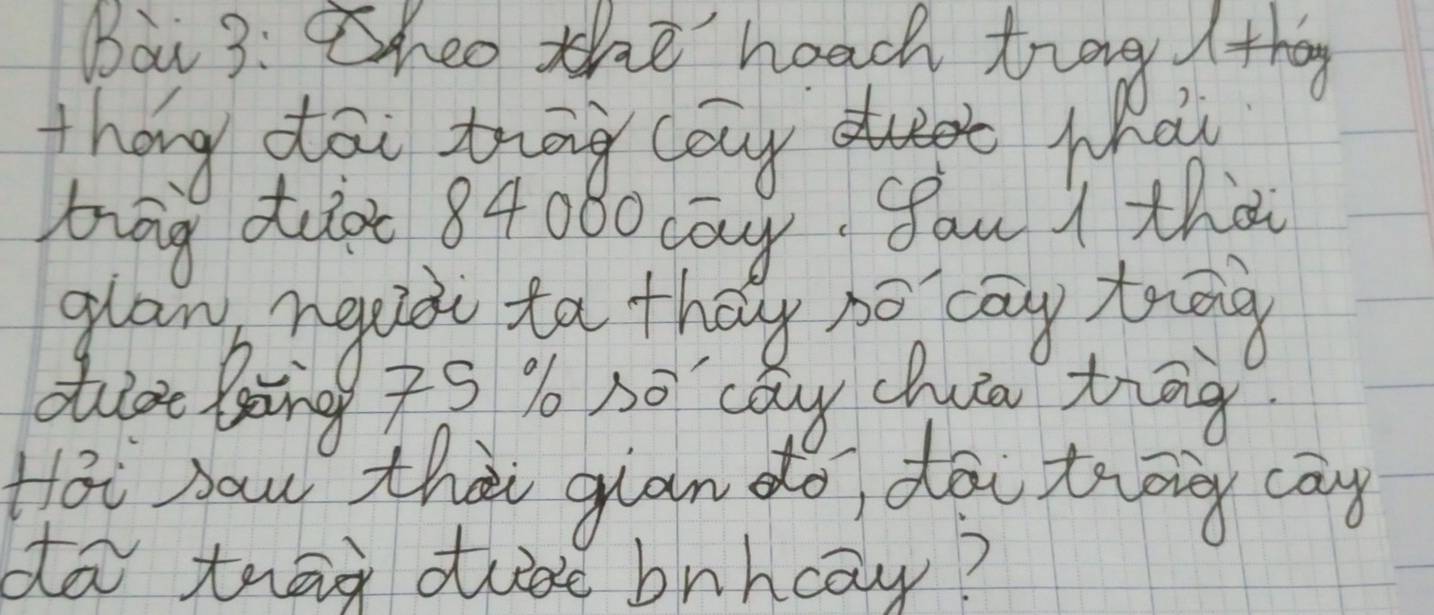 Bài 3: Theo kế hoạch trog 1 thág
tháng đôi trồg cây được phải
trồg được 84000 cây. Sau 1 thời
gian, người ta thấy số cây trồg
được bằng 75 % số cây chưa trồg.
Hỏi sau thời gian đó, đôi trồg cây
đã trồg được bnh cây?